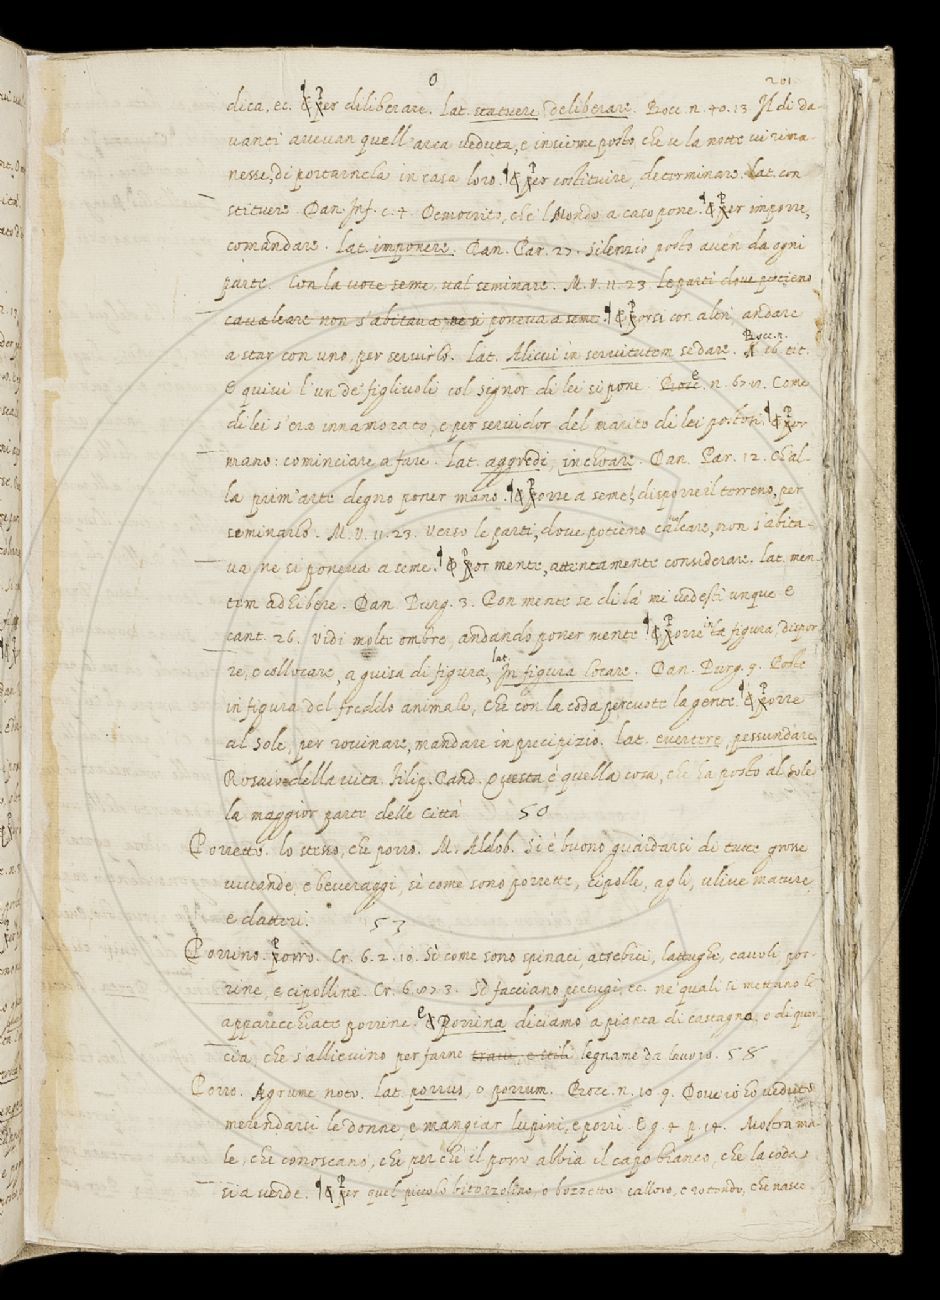 201
dica, ec. ¶ Per diliberare. lat. statuere, deliberare. Bocc. n. 40. 13 Il dì da-
vanti avevan quell'arca veduta, e insieme posto, che se la notte vi rima-
nesse, di portarnela in casa loro. ¶ Per costituire, determinare. lat. con
stituere. Dan. Inf. c. 4. Democrito, che 'l Mondo a caso pone. ¶ Per imporre,
comandare. lat. imponere. Dan. Par. 27. Silenzio posto avén da ogni
parte. Con la voce seme, val seminare. M. V. 11. 23. le parti dove potieno
cavalcare non s'abitava, ne si poneva a seme. ¶ Porsi con altri andare
a star con uno, per servirlo. lat. Alicui in servitutem se dare. Bocc. n. 16. tit.
E quivi l'un de' figliuoli col signor di lei si pone. E n. 67. Come
di lei s'era innamorato, e per servidor del marito di lei postosi. ¶ Por
mano: cominciare a fare. lat. aggredi, inchoare. Dan. Par. 12. Ch'al-
la prim'arte degno poner mano. ¶ Porre a seme, disporre il terreno, per
seminarlo. M. V. 11. 23. Verso le parti, dove potieno calcare, non s'abita-
va ne si poneva a seme. ¶ Por mente, attentamente considerare. lat. men-
tem adhibere. Dan. Purg. 3. Pon mente se di là mi vedesti unque E
cant. 26. Vidi molte ombre, andando poner mente ¶ Porre in figura, dispor-
re, e collocare, a guisa di figura, lat. In figura locare. Dan. Purg. 9. Poste
in figura del freddo animale, Che con la coda percuote la gente. ¶ Porre
al Sole, per rovinare, mandare in precipizio. lat. evertere, pessundare.
della vita. Filip. Pand. Questa è quella cosa, che ha posto al Sole
la maggior parte delle Città 50
Porretto. lo stesso, che porro. M. Aldob. Si è buono guardarsi di tutte grosse
vivande, e beveraggi, sì come sono porrette, cipolle, agli, ulive mature,
e datteri. 53
Porrino. Porro. Cr. 6. 2. 10. Sì come sono spinaci, atrebici, lattughe, cavoli, por-
rine, e cipolline. Cr. 6. 3. Sì facciano pertugi, ec. ne' quali si mettano le
apparecchiate porrine. E Porrina diciamo a pianta di castagno, o di quer-
cia, che s'allievino per farne legname da lavoro. 58
Porro. Agrume noto. lat. porrus, o porrum. Bocc. n. 10. 9. Dove io ho veduto
merendarsi le donne, e mangiar lupini, e porri. E g. 4. p. 14. Mostra ma-
le, che conoscano, che perchè il porro abbia il capo bianco, che la coda
sia verde. ¶ Per quel piccolo bitorzolino, o bozzetto calloso, e rotondo, che nasce